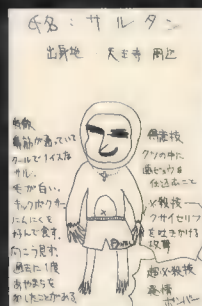 氏名：サルタン
出身地 天王寺周辺
特徴
鼻筋が通っている
クールでナイスな
サル。
毛が白い。
キックボクサー
にんにくを
好んで食す。
向こう見ず。
過去に1度
あやまちを
おかしたことがある
得意技
クツの中に
画ビョウを
仕込むこと
必殺技
クサイセリフ
を吐きかける
攻撃
超必殺技
発情
ボンバー